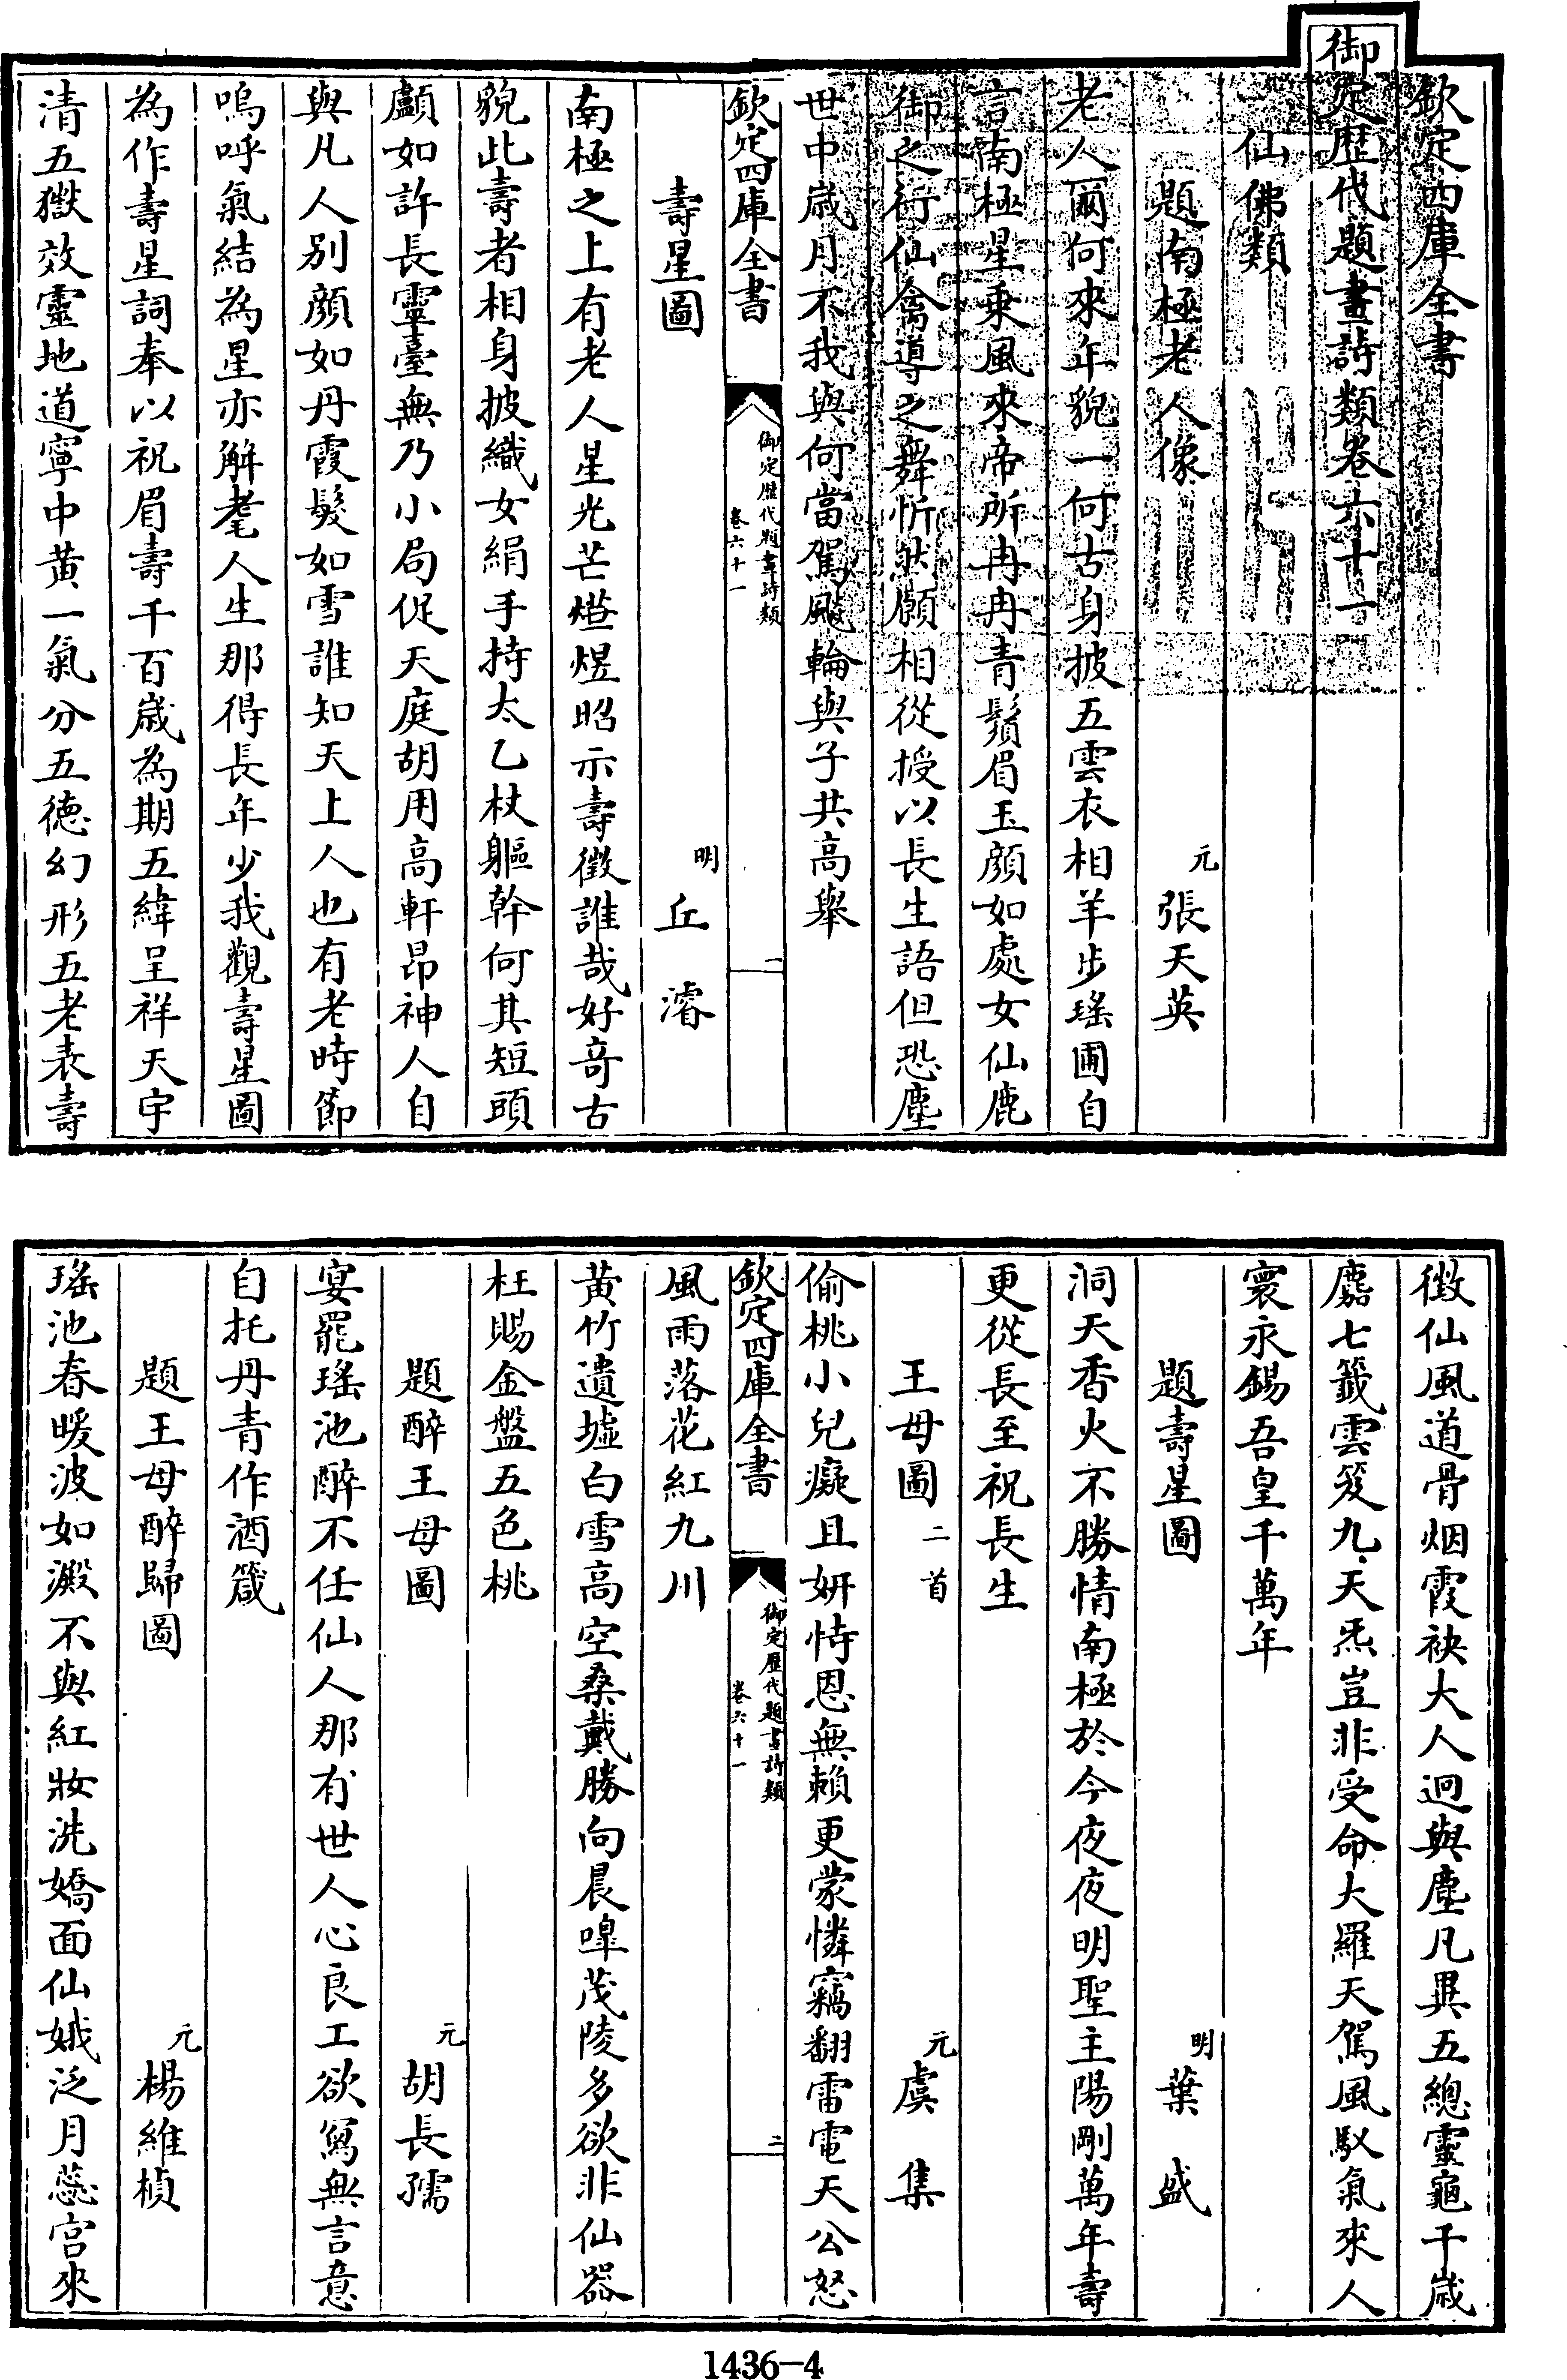 欽定四庫全書
御定歷代題畫詩類卷六十一
仙佛類
題南極老人像
元 張天英
老人爾何來年貌一何古身披五雲衣相羊步瑤圃自
言南極星乘風來帝所冉冉青鬚眉玉顔如處女仙鹿
御之行仙禽導之舞忻然願相從授以長生語但恐塵
世中歲月不我與何當駕飈輪與子共高舉
欽定四庫全書
御定歷代題畫詩類
卷六十一
一
壽星圖
明 丘濬
南極之上有老人星光芒爀煜昭示壽徵誰哉好奇古
貌此壽者相身披織女絹手持太乙杖軀幹何其短頭
顱如許長靈臺無乃小局促天庭胡用高軒昂神人自
與凡人别顔如丹霞髮如雪誰知天上人也有老時節
嗚呼氣結為星亦解耄人生那得長年少我觀壽星圖
為作壽星詞奉以祝眉壽千百歲為期五緯呈祥天宇
清五嶽效靈地道寧中黄一氣分五徳幻形五老表壽
徴仙風道骨烟霞袂大人迥與塵凡異五總靈龜千歲
麊七籤雲笈九天炁豈非受命大羅天駕風馭氣來人
寰永錫吾皇千萬年
題壽星圖
明 葉盛
洞天香火不勝情南極於今夜夜明聖主陽剛萬年壽
更從長至祝長生
王母圖 二首
元 虞集
偷桃小兒癡且妍恃恩無頼更蒙憐竊翻雷電天公怒
欽定四庫全書
御定歷代題畫詩類
卷六十一
二
風雨落花紅九川
黄竹遺墟白雪高空桑戴勝向晨嘷茂陵多欲非仙器
枉賜金盤五色桃
題醉王母圖
元 胡長孺
宴罷瑤池醉不任仙人那有世人心良工欲寫無言意
自托丹青作酒箴
題王母醉歸圖
元 楊維楨
瑤池春暖波如澱不與紅妝洗嬌面仙娥泛月蕊宫來
1436-4